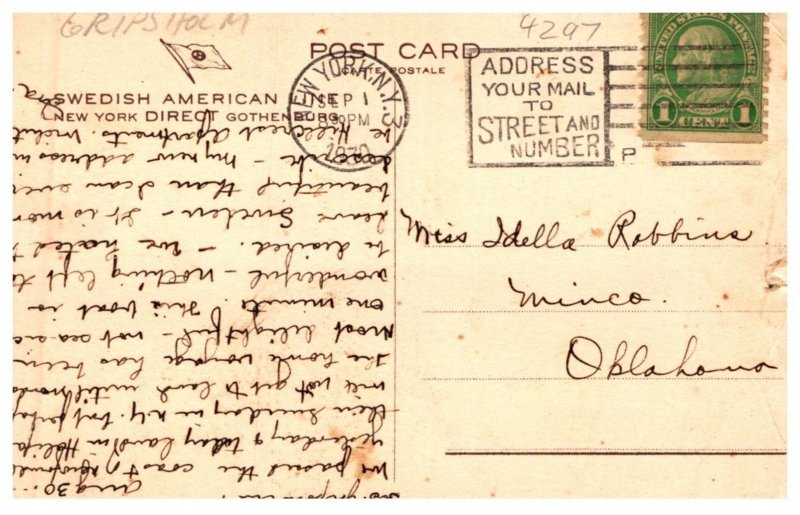 GRIPSHOLM
4297
POST CARD
CARTE POSTALE
SWEDISH AMERICAN LINE
NEW YORK DIRECT GOTHENBURG
NEW YORK, N.Y. 3
SEP 1
PM
1930
ADDRESS
YOUR MAIL
TO
STREET AND
NUMBER
P
UNITED STATES POSTAGE
1 1
CENT
Miss Idella Robbins
Minco.
Oklahoma
Aug 30
We passed the coast of
yesterday & today land in Halifa
then Sunday in N.Y. but
will not get to land until
The home voyage has been
most delightful - not sea
one minute. This boat is
wonderful - nothing left to
be desired. - We hated t
leave Sweden - It is mor
beautiful than I can ever
describe - My new address
be Hillcrest Apartments. Wichit
Ora.